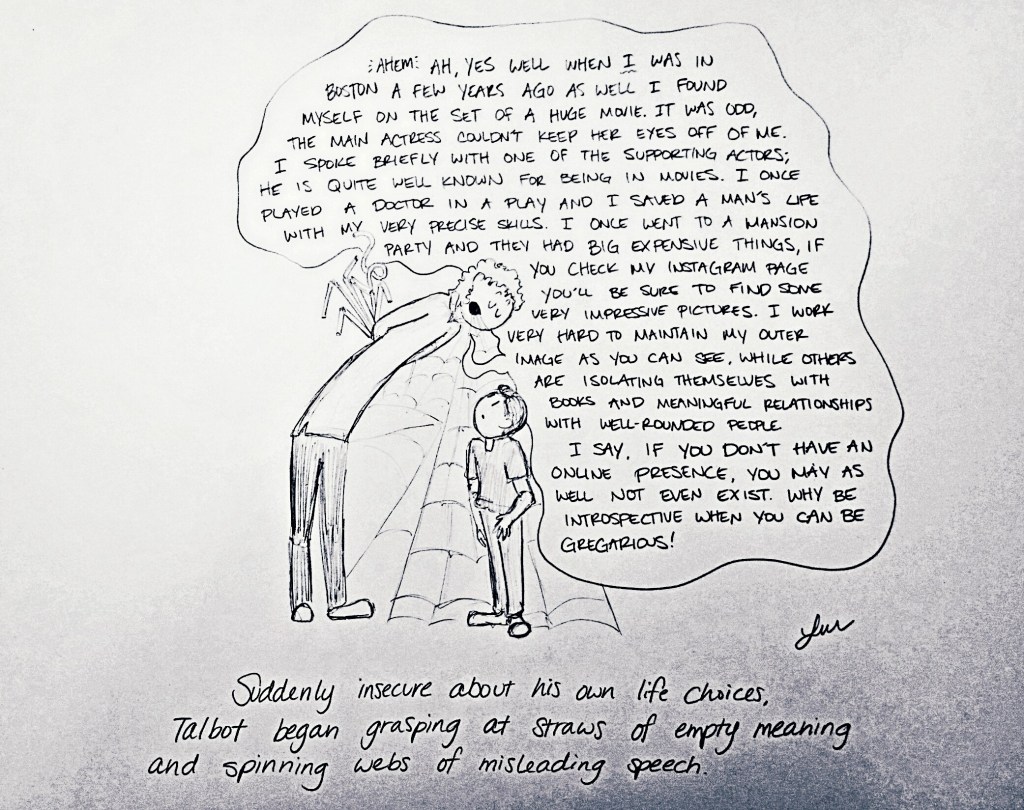 AHEM AH, YES WELL WHEN I WAS IN
BOSTON A FEW YEARS AGO AS WELL I FOUND
MYSELF ON THE SET OF A HUGE MOVIE. IT WAS ODD,
THE MAIN ACTRESS COULDN'T KEEP HER EYES OFF OF ME.
I SPOKE BRIEFLY WITH ONE OF THE SUPPORTING ACTORS;
HE IS QUITE WELL KNOWN FOR BEING IN MOVIES. I ONCE
PLAYED A DOCTOR IN A PLAY AND I SAVED A MAN'S LIFE
WITH MY VERY PRECISE SKILLS. I ONCE WENT TO A MANSION
PARTY AND THEY HAD BIG EXPENSIVE THINGS, IF
YOU CHECK MY INSTAGRAM PAGE
YOU'LL BE SURE TO FIND SOME
VERY IMPRESSIVE PICTURES. I WORK
VERY HARD TO MAINTAIN MY OUTER
IMAGE AS YOU CAN SEE, WHILE OTHERS
ARE ISOLATING THEMSELVES WITH
BOOKS AND MEANINGFUL RELATIONSHIPS
WITH WELL-ROUNDED PEOPLE
I SAY, IF YOU DON'T HAVE AN
ONLINE PRESENCE, YOU MAY AS
WELL NOT EVEN EXIST. WHY BE
INTROSPECTIVE WHEN YOU CAN BE
GREGARIOUS!
Suddenly insecure about his own life choices,
Talbot began grasping at straws of empty meaning
and spinning webs of misleading speech.